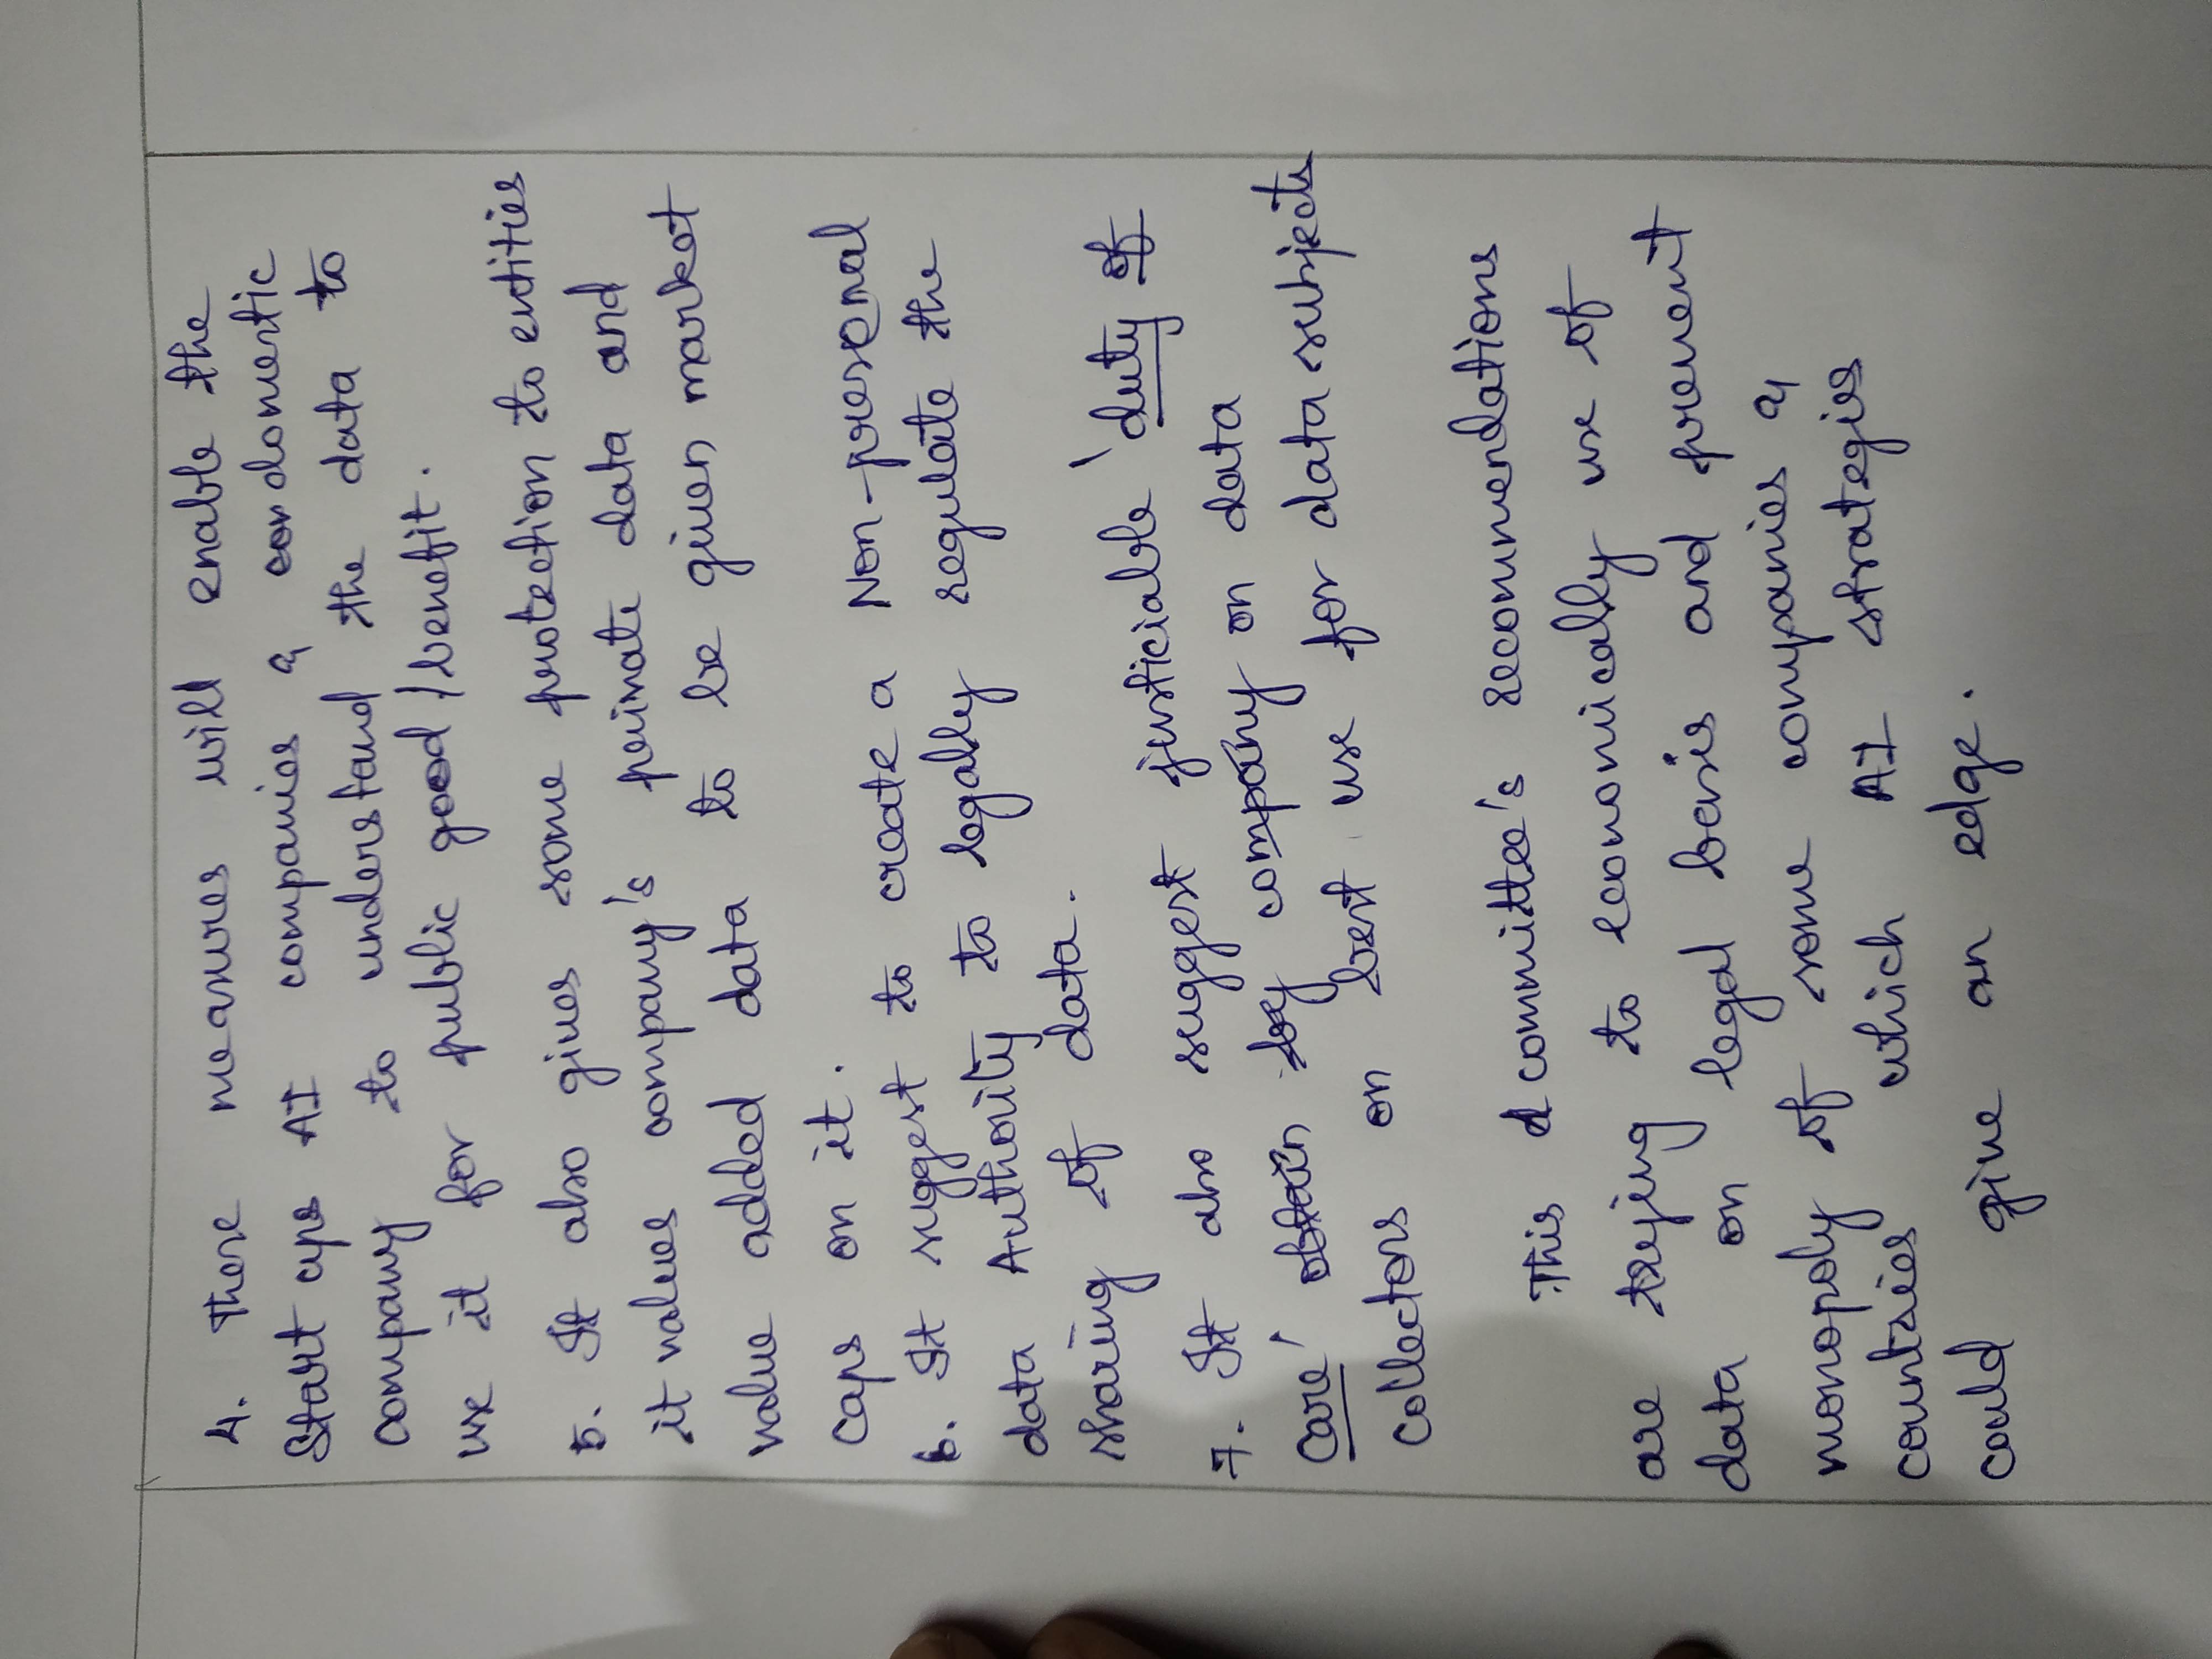 4. These measures will enable the
Start ups AI companies & domestic
company to understand the data to
use it for public good/benefit.
5. It also gives some protection to entities
it values company's private data and
value added data to be given market
caps on it.
6. It suggest to create a Non-personal
data Authority to legally regulate the
sharing of data.
7. It also suggest justiciable 'duty of
care' on data
collectors on best use for data subjects
This committee's recommendations
are trying to economically use of
data on legal basis and prevent
monopoly of some companies &
countries which AI strategies
could give an edge.